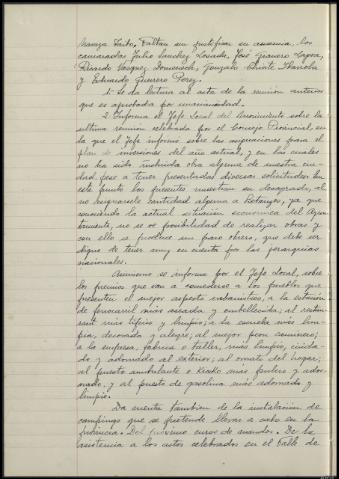 Naveyra Brito, Faltan sin justificar su ausencia, los
camaradas Julio Sanchez Losada, José Granero
Ricardo Vasquez Domenech, Gonzalo
y Eduardo Guerrero Perez.
1.- Se da lectura al acta de la reunión anterior
que es aprobada por unanimidad.
2. Informa el Jefe Local del Movimiento sobre la
ultima reunion celebrada por el Consejo Provincial, en
la que el Jefe informo sobre las asignaciones para el
plan de inversiones del año actual, y en las cuales
no ha sido incluida obra alguna de nuestra ciu-
dad pese a tener presentadas diversas solicitudes. En
este punto los presentes muestran su desagrado, al
no asignarsele cantidad alguna a Betanzos, ya que
conociendo la actual situacion economica del Ayun-
tamiento, no se ve posibilidad de realizar obras y
con ello se produce un paro obrero, que debe ser
digno de tener muy en cuenta por las jerarquias
nacionales.
Asimismo se informa por el Jefe Local, sobre
los premios que van a concederse a los pueblos que
presenten el mejor aspecto urbanistico, a la estación
de ferrocarril más aseada y embellecida; al restau-
rant más tipico y limpio; a la escuela más lim-
pia, decorada y alegre; al mejor peon caminero;
a la empresa, fabrica o taller, más limpio, cuida-
do y adornado al exterior; al ornato del hogar;
al puesto ambulante o kiosko más pulcro y ador-
nado, y al puesto de gasolina más adornado y
limpio.
Da cuenta tambien de la instalacion de
campings que se pretende llevar a cabo en la
provincia. Del proximo curso de mandos. De la
asistencia a los actos celebrados en el Valle de